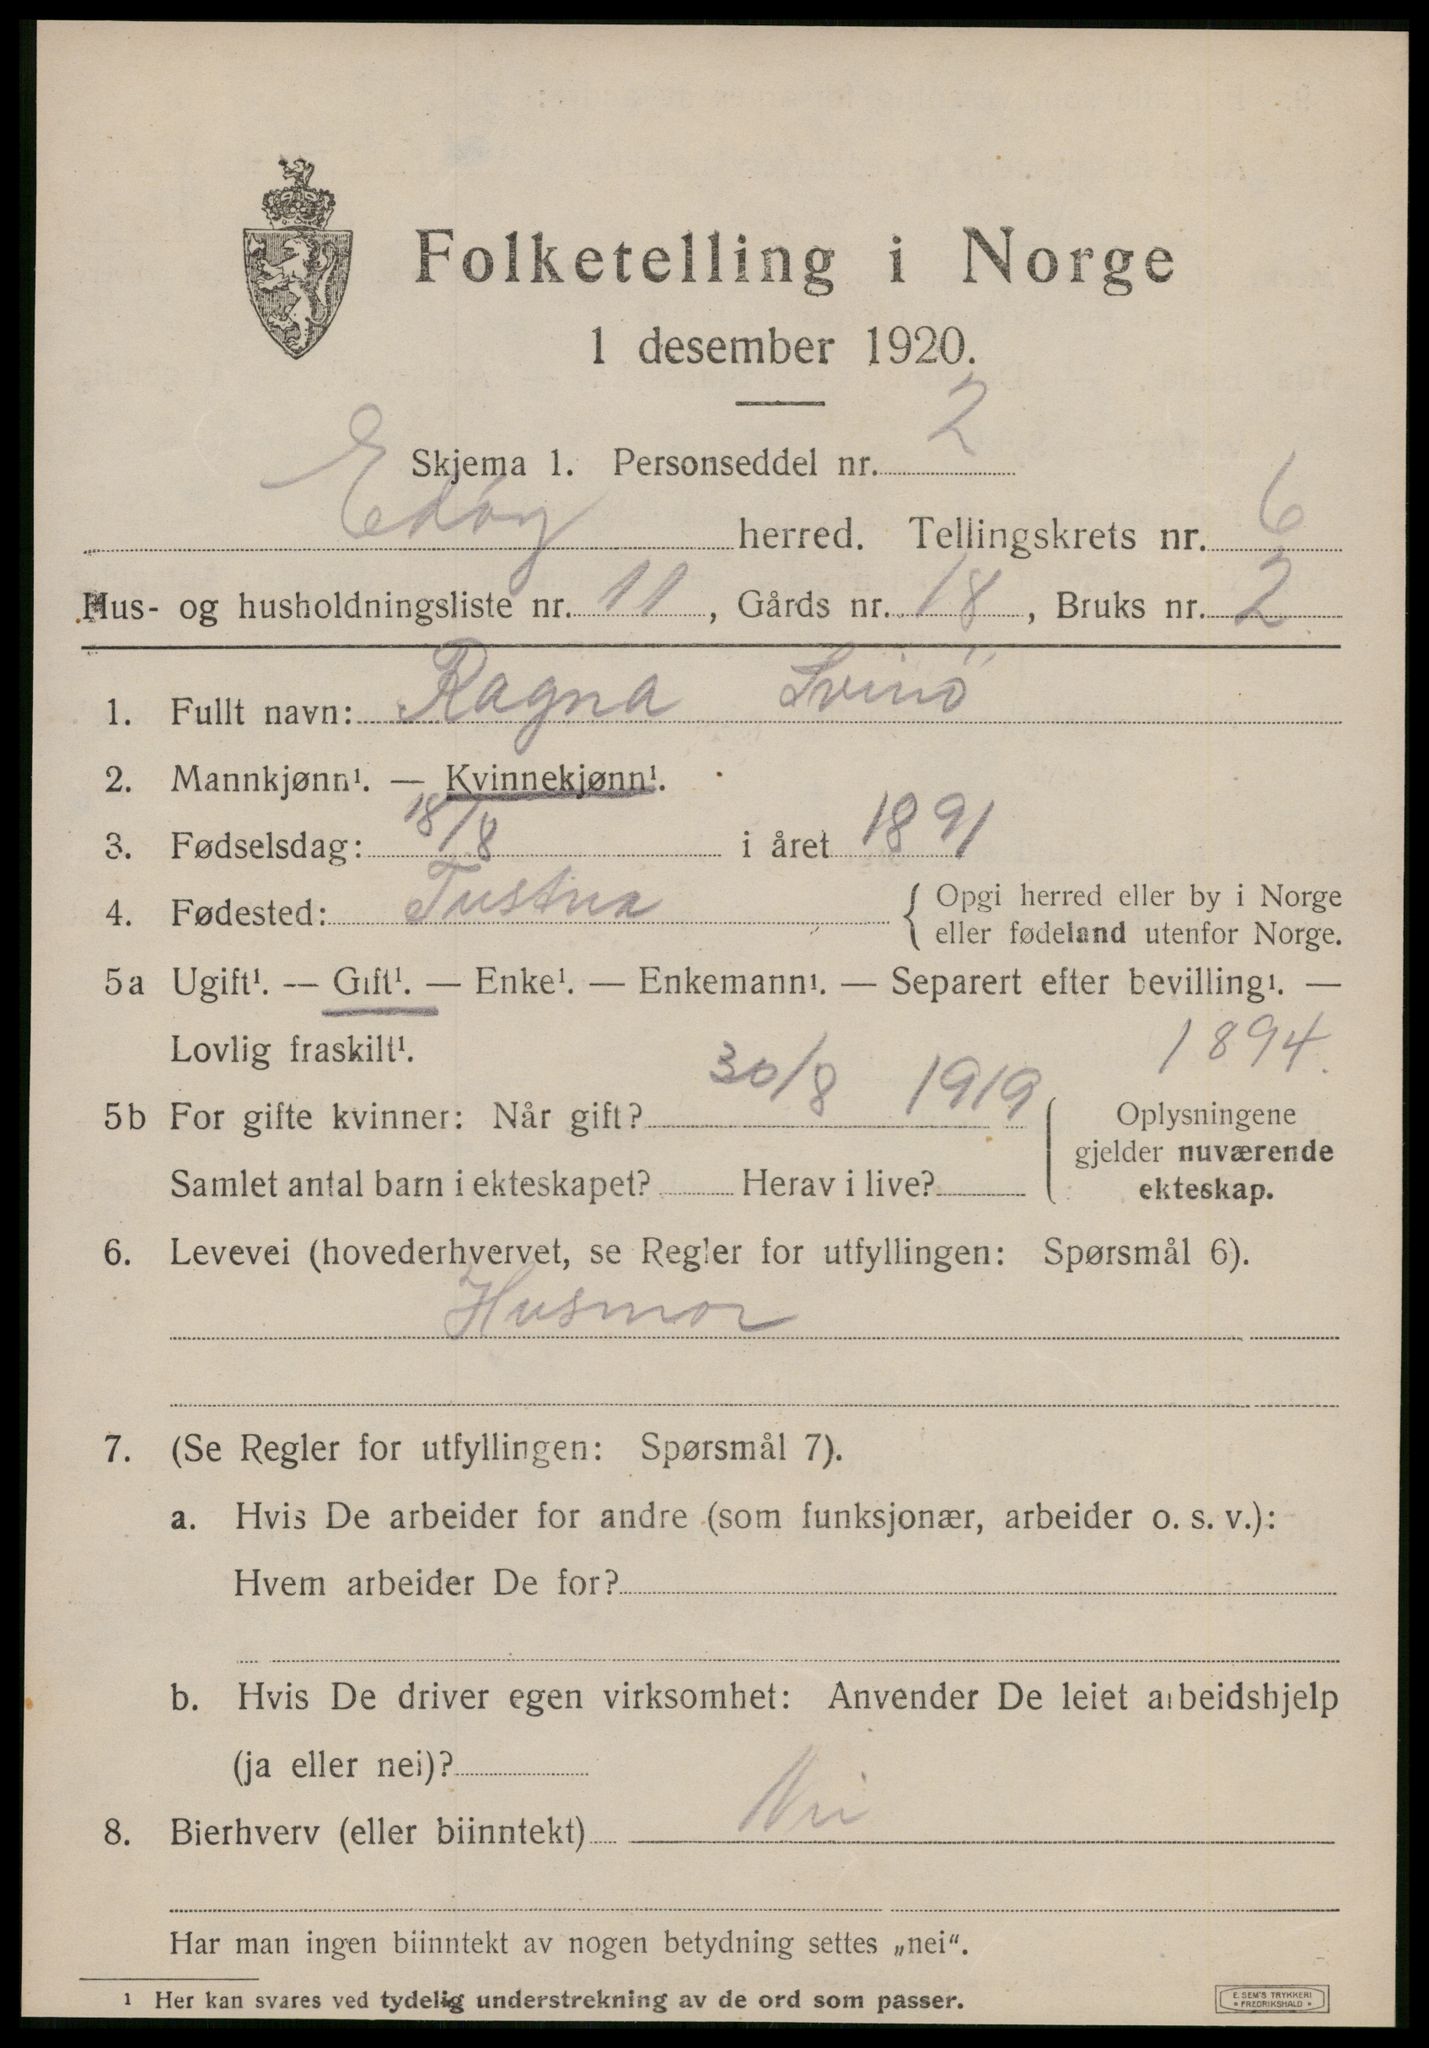 Folketelling i Norge
1 desember 1920.
Skjema 1. Personseddel nr. 2
Edøy herred. Tellingskrets nr. 6
Hus- og husholdningsliste nr. 11, Gårds nr. 18, Bruks nr. 2
1. Fullt navn: Ragna Svinö
2. Mannkjønn¹. — Kvinnekjønn¹.
3. Fødselsdag: 18/8 i året 1891
4. Fødested: Tustna { Opgi herred eller by i Norge
eller fødeland utenfor Norge.
5a Ugift¹. — Gift¹. — Enke¹. — Enkemann¹. — Separert efter bevilling¹. —
Lovlig fraskilt¹. 1894.
5b For gifte kvinner: Når gift? 30/8 1919 { Oplysningene
gjelder nuværende
Samlet antal barn i ekteskapet? Herav i live? ekteskap.
6. Levevei (hovederhvervet, se Regler for utfyllingen: Spørsmål 6).
Husmor
7. (Se Regler for utfyllingen: Spørsmål 7).
a. Hvis De arbeider for andre (som funksjonær, arbeider o. s. v.):
Hvem arbeider De for?
b. Hvis De driver egen virksomhet: Anvender De leiet arbeidshjelp
(ja eller nei)?
8. Bierhverv (eller biinntekt) Nei
Har man ingen biinntekt av nogen betydning settes „nei".
¹ Her kan svares ved tydelig understrekning av de ord som passer.
E. SEM'S TRYKKERI
* FREDRIKSHALD *